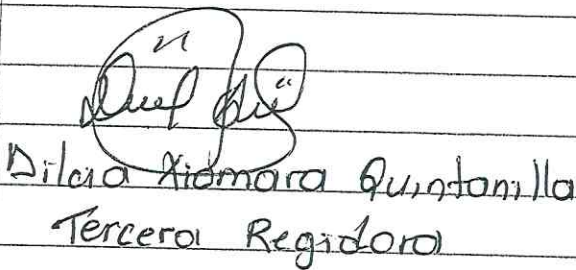 Dilcia Xiomara Quintanilla
Tercera Regidora